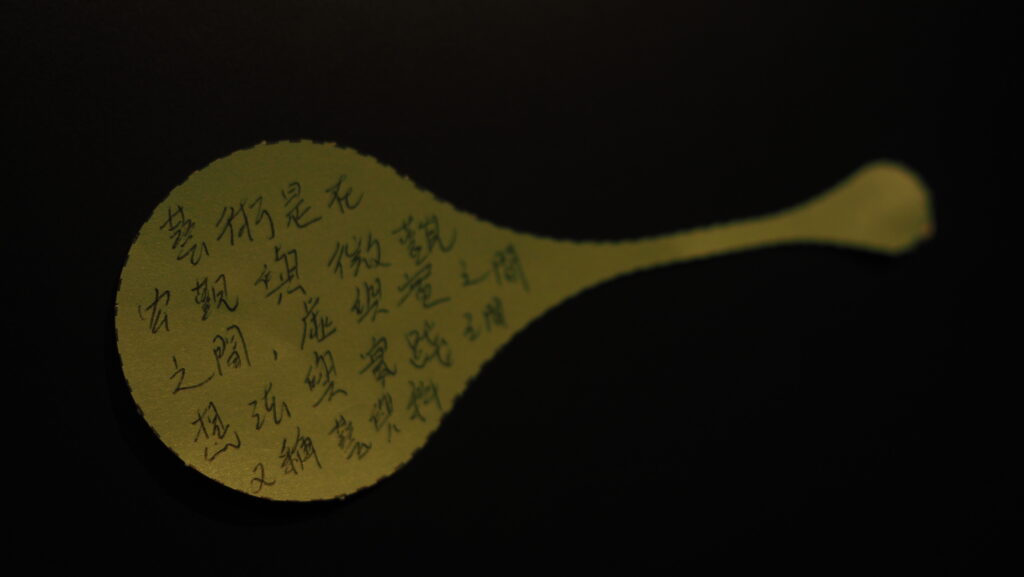 藝術是在
宏觀與微觀
之間,虛與實之間
想法與實踐之間
又稱藝資料